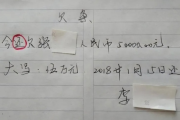 欠条
今还欠 人民币50000.00元,
大写:伍万元 2018年1月15日还
李